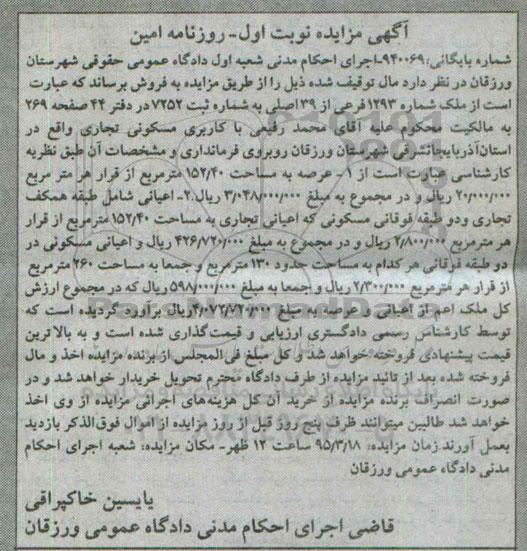 آگهی مزایده نوبت اول- روزنامه امین
شماره بایگانی: ۹۴۰۰۶۹-اجرای احکام مدنی شعبه اول دادگاه عمومی حقوقی شهرستان
ورزقان در نظر دارد مال توقیف شده ذیل را از طریق مزایده به فروش برساند که عبارت
است از ملک شماره ۱۲۹۳ فرعی از ۳۹ اصلی به شماره ثبت ۷۲۵۲ در دفتر ۴۴ صفحه ۲۶۹
به مالکیت محکوم علیه آقای محمد رفیعی با کاربری مسکونی تجاری واقع در
استان آذربایجانشرقی شهرستان ورزقان روبروی فرمانداری و مشخصات آن طبق نظریه
کارشناسی عبارت است از ۱- عرصه به مساحت ۱۵۲/۴۰ مترمربع از قرار هر متر مربع
۲۰/۰۰۰/۰۰۰ ریال و در مجموع به مبلغ ۳/۰۴۸/۰۰۰/۰۰۰ ریال.۲- اعیانی شامل طبقه همکف
تجاری ودو طبقه فوقانی مسکونی که اعیانی تجاری به مساحت ۱۵۲/۴۰ مترمربع از قرار
هر مترمربع ۲/۸۰۰/۰۰۰ ریال و در مجموع به مبلغ ۴۲۶/۷۲۰/۰۰۰ ریال و اعیانی مسکونی در
دو طبقه فرقانی هر کدام به مساحت حدود ۱۳۰ مترمربع و جمعا به مساحت ۲۶۰ مترمربع
از قرار هر مترمربع ۲/۳۰۰/۰۰۰ ریال و جمعا به مبلغ ۵۹۸/۰۰۰/۰۰۰ ریال که در مجموع ارزش
کل ملک اعم از اعیانی و عرصه به مبلغ ۴/۰۷۲/۷۲۰/۰۰۰ ریال برآورد گردیده است که
توسط کارشناس رسمی دادگستری ارزیابی و قیمت‌گذاری شده است و به بالاترین
قیمت پیشنهادی فروخته خواهد شد و کل مبلغ فی‌المجلس از برنده مزایده اخذ و مال
فروخته شده بعد از تائید مزایده از طرف دادگاه محترم تحویل خریدار خواهد شد و در
صورت انصراف برنده مزایده از خرید آن کل هزینه‌های اجرائی مزایده از وی اخذ
خواهد شد طالبین میتوانند ظرف پنج روز قبل از روز مزایده از اموال فوق‌الذکر بازدید
بعمل آورند زمان مزایده: ۹۵/۳/۱۸ ساعت ۱۲ ظهر- مکان مزایده: شعبه اجرای احکام
مدنی دادگاه عمومی ورزقان
یایسین خاکپراقی
قاضی اجرای احکام مدنی دادگاه عمومی ورزقان